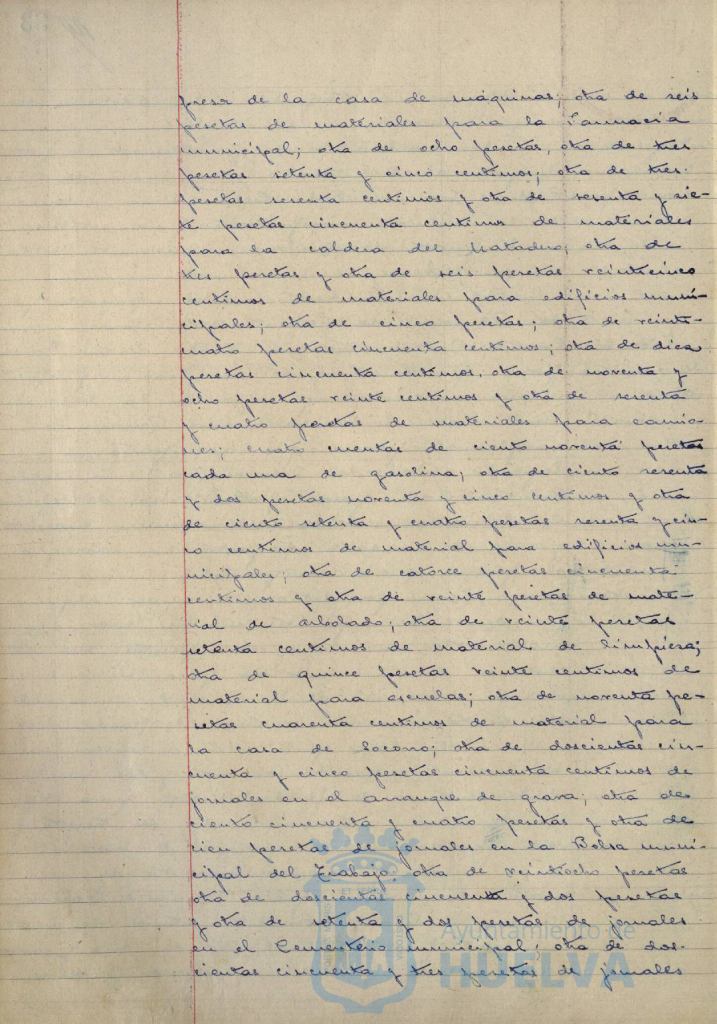 presa de la casa de máquinas; otra de seis
pesetas de materiales para la Farmacia
municipal; otra de ocho pesetas, otra de tres
pesetas setenta y cinco centimos; otra de tres
pesetas sesenta centimos y otra de sesenta y sie-
te pesetas cincuenta centimos de materiales
para la caldera del Matadero; otra de
tres pesetas y otra de seis pesetas veinticinco
centimos de materiales para edificios muni-
cipales; otra de cinco pesetas; otra de veinti-
cuatro pesetas cincuenta centimos; otra de diez
pesetas cincuenta centimos, otra de noventa y
ocho pesetas veinte centimos y otra de sesenta
y cuatro pesetas de materiales para camio-
nes; cuatro cuentas de ciento noventa pesetas
cada una de gasolina; otra de ciento sesenta
y dos pesetas noventa y cinco centimos y otra
de ciento setenta y cuatro pesetas sesenta y cin-
co centimos de material para edificios mu-
nicipales; otra de catorce pesetas cincuenta
centimos y otra de veinte pesetas de mate-
rial de arbolado; otra de veinte pesetas
setenta centimos de material de limpieza;
otra de quince pesetas veinte centimos de
material para escuelas; otra de noventa pe-
setas cuarenta centimos de material para
la casa de Socorro; otra de doscientas cin-
cuenta y cinco pesetas cincuenta centimos de
jornales en el arranque de grava; otra de
ciento cincuenta y cuatro pesetas y otra de
cien pesetas de jornales en la Bolsa muni-
cipal del Trabajo, otra de veintiocho pesetas
otra de doscientas cincuenta y dos pesetas
y otra de setenta y dos pesetas de jornales
en el Cementerio municipal; otra de dos-
cientas cincuenta y tres pesetas de jornales
Ayuntamiento de
HUELVA